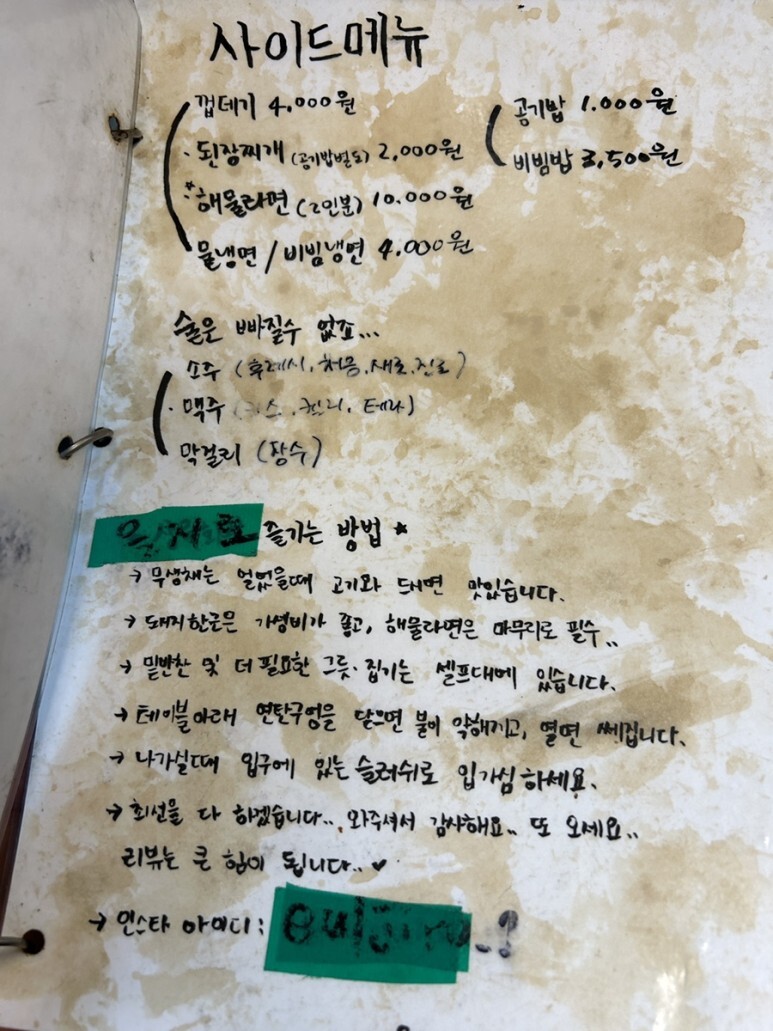 사이드메뉴
껍데기 4,000원
공기밥 1.000원
된장찌개 (공기밥별도) 2,000원
비빔밥 3,500원
해물라면 (2인분) 10.000원
물냉면 / 비빔냉면 4.000원
술은 빠질수 없죠...
소주 (후레시, 처음, 새로, 진로)
맥주 테라)
막걸리 (장수)
즐기는 방법
→ 무생채는 얼었을때 고기와 드시면 맛있습니다.
→ 돼지한근은 가성비가 좋고, 해물라면은 마무리로 필수..
→ 밑반찬 및 더 필요한 그릇·집기는 셀프대에 있습니다.
→ 테이블아래 연탄구멍을 닫으면 불이 약해지고, 열면 쎄집니다.
→ 나가실때 입구에 있는 슬러쉬로 입가심 하세요.
→ 최선을 다 하겠습니다.. 와주셔서 감사해요.. 또 오세요..
리뷰는 큰 힘이 됩니다.. ♥
→ 인스타 아이디: